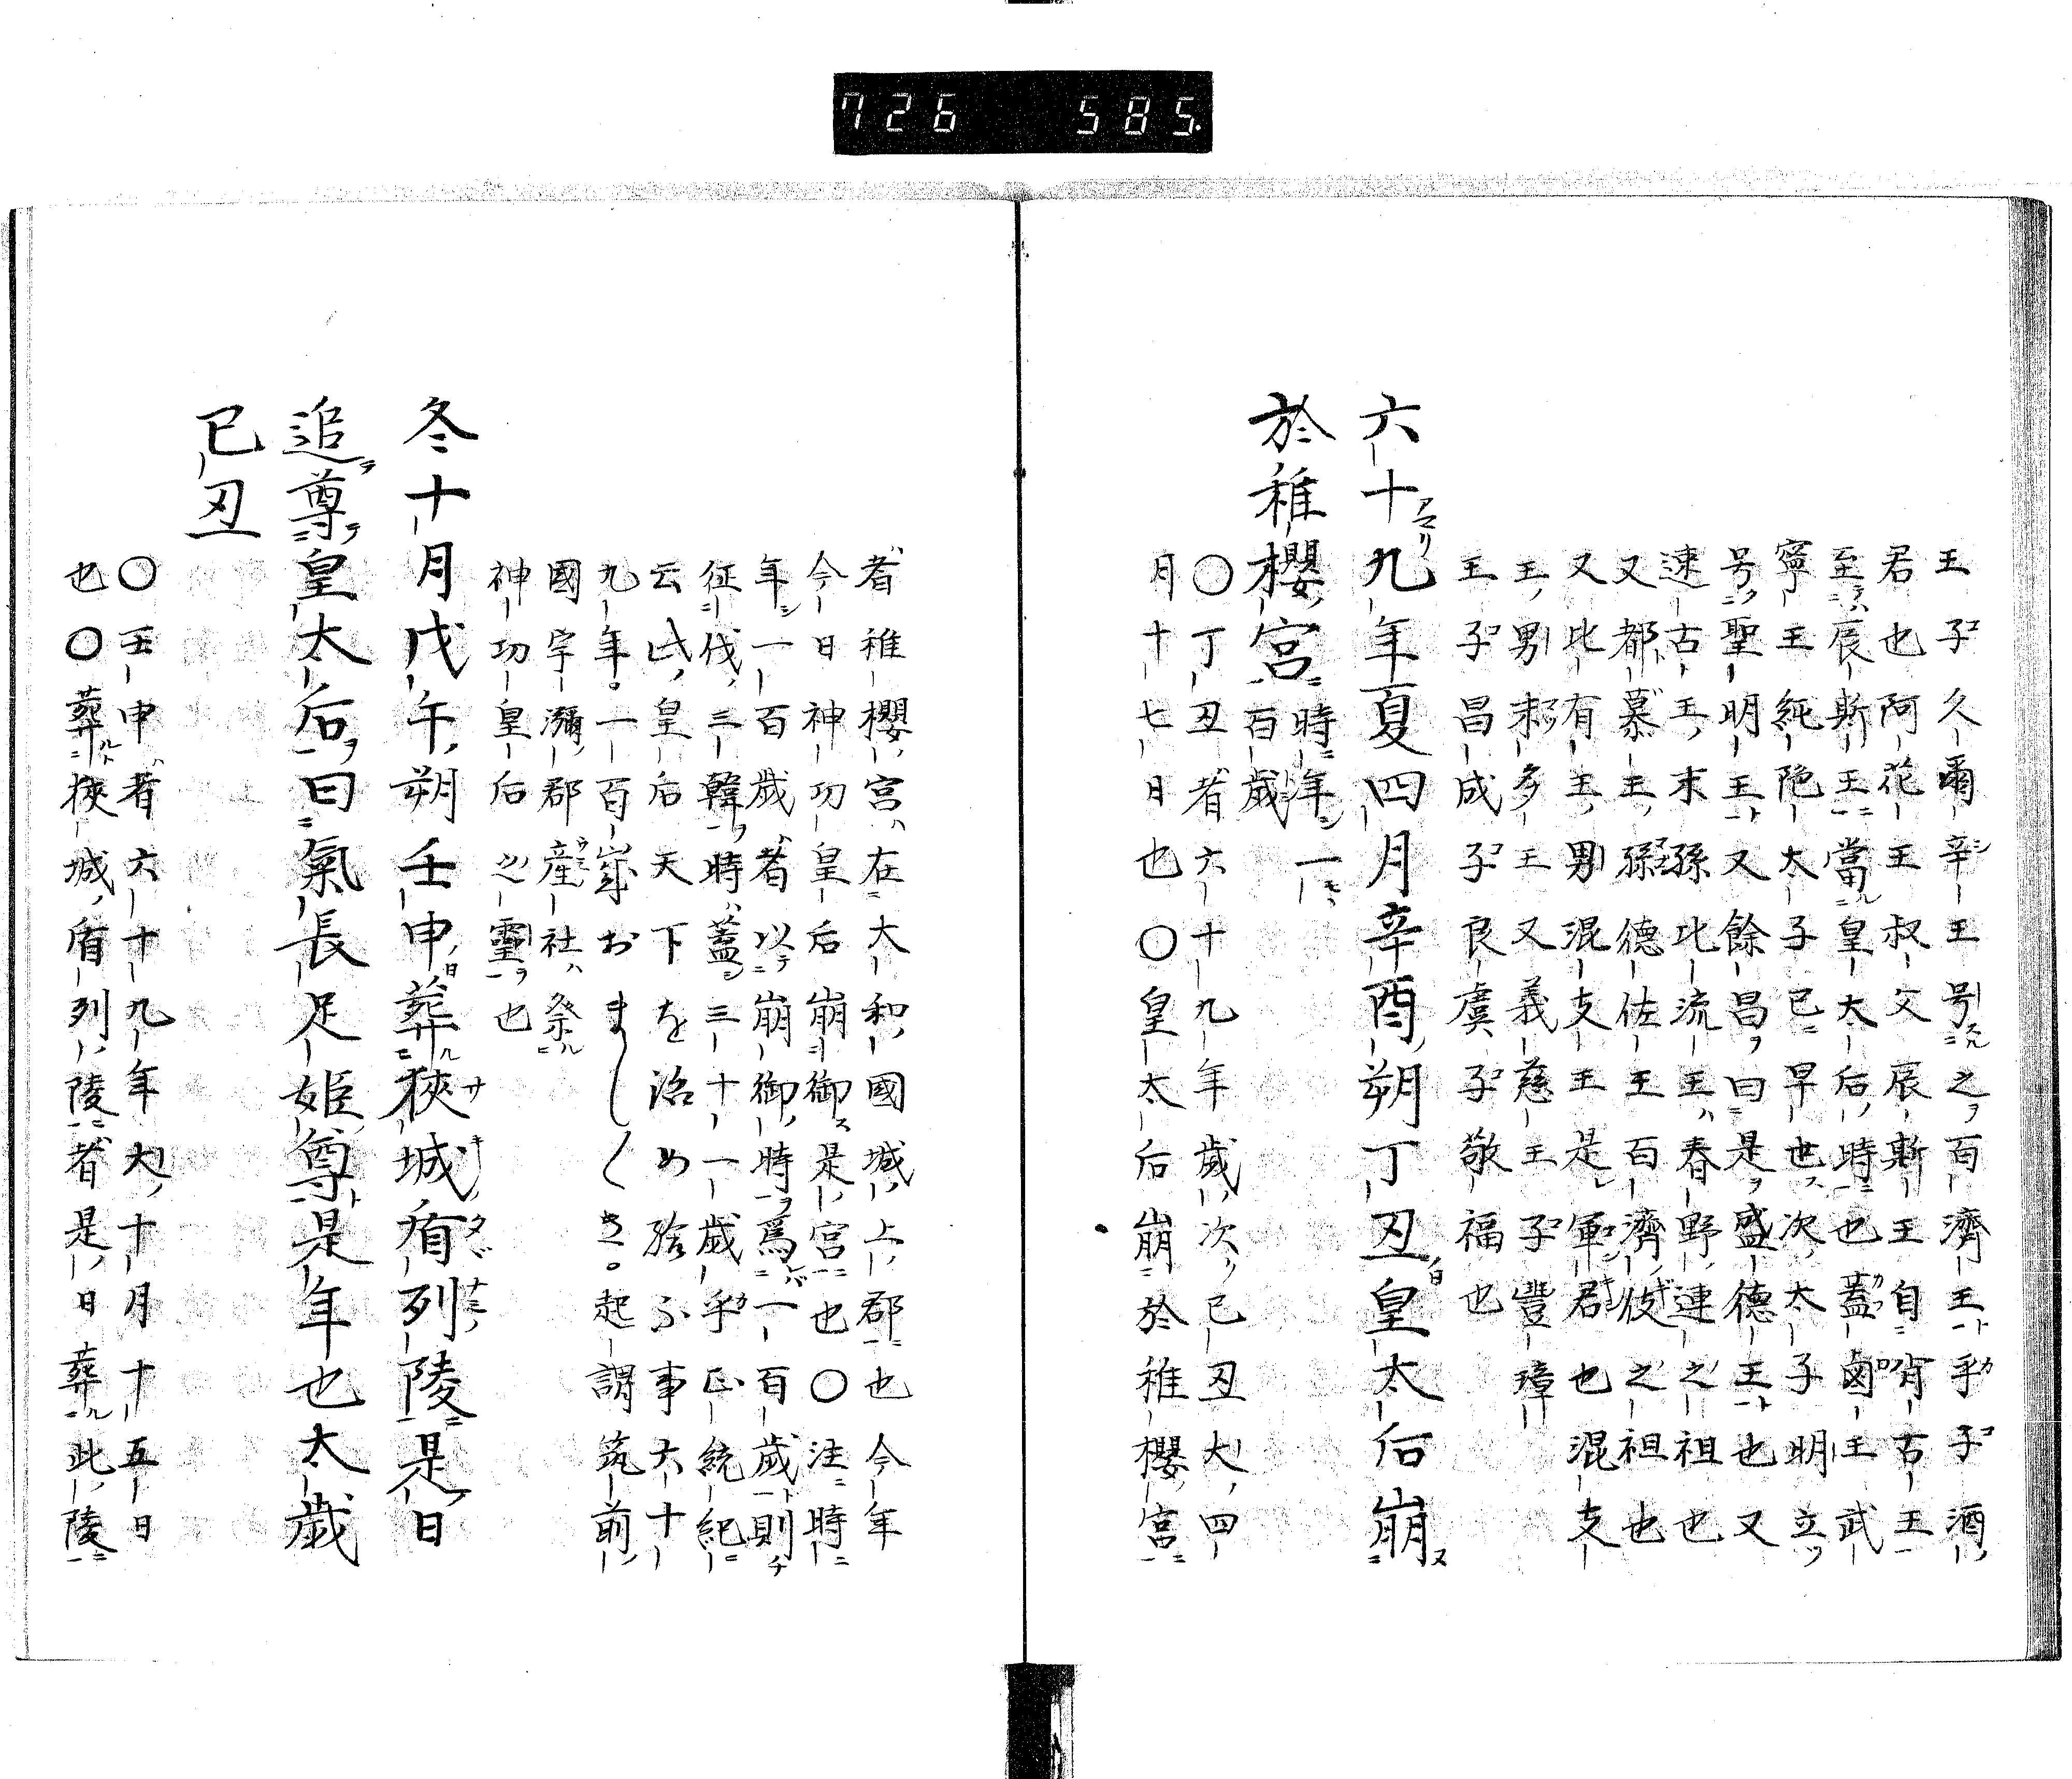 726 585.
王子久爾辛王号之百濟王乎子酒
君也阿花王叔父辰斯王自肖古王
至辰斯王當皇太后時也蓋鹵王武
寧王純陁太子已早世次太子明立
号聖明王又餘昌曰是盛德王也又
速古王末孫比流王春野連之祖也
又都慕王孫德佐王百濟伎之祖也
又比有王男混支王是軍君也混支
王男末多王又義慈王子豐璋
王子昌成子良虞子敬福也
六十九年夏四月辛酉朔丁丑皇太后崩
於稚櫻宮時年一百歲
○丁丑者六十九年歲次己丑大四
月十七日也○皇太后崩於稚櫻宮
者稚櫻宮在大和國城上郡也今年
今日神功皇后崩御是宮也○注時
年一百歲者以崩御時爲一百歲則
征伐三韓時蓋三十一歲乎正統紀
云此皇后天下を治め給ふ事六十
九年。一百歲おましくき。起謂筑前
國宇瀰郡産社祭
神功皇后之靈也
冬十月戊午朔壬申葬狹城盾列陵是日
追尊皇太后曰氣長足姬尊是年也太歲
己丑
○壬申者六十九年大十月十五日
也○葬狹城盾列陵者是日葬此陵